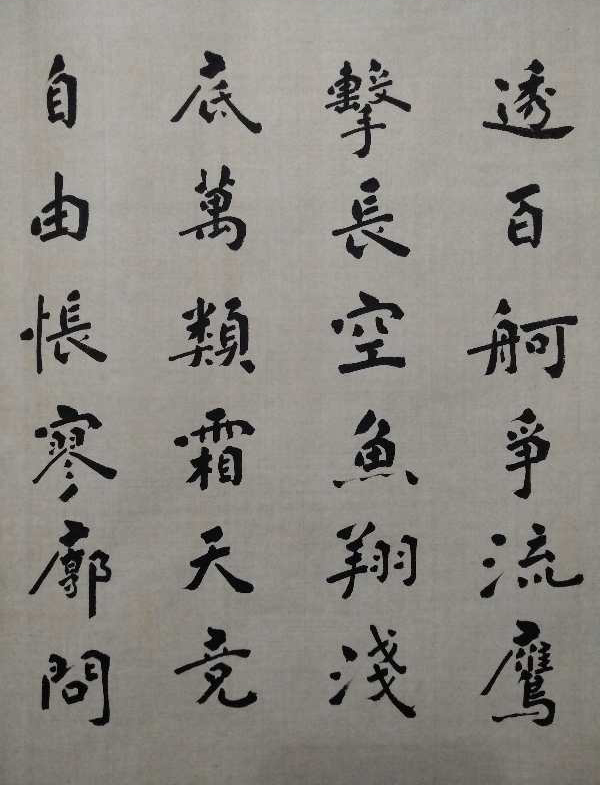 透百舸爭流鷹
擊長空魚翔淺
底萬類霜天竞
自由悵寥廓問